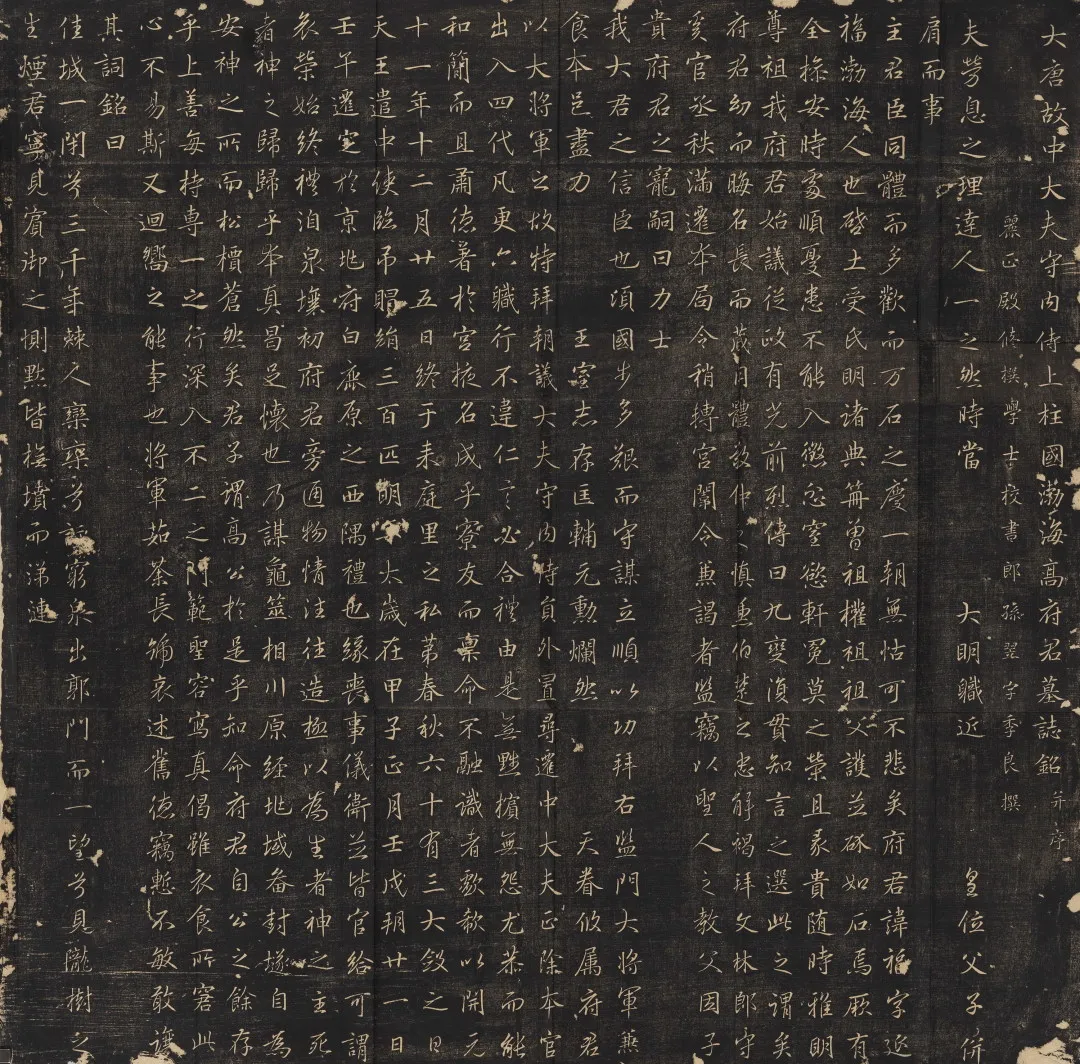 大唐故中大夫守內侍上柱國渤海高府君墓誌銘并序
麗正殿修撰學士校書郎孫翌字季良撰
夫勞息之理達人一之然時當 大明職近 皇位父子併
肩而事
主君臣同體而多歡而万石之慶一朝無怙可不悲矣府君諱福字延
福渤海人也啓土受氏明諸典冊曾祖權祖祖父護並砅如石焉厥有
全操安時處順憂患不能入懲忿窒慾軒冕莫之榮且彖貴隨時雅明
尊祖我府君始議從政有光前烈傳曰九變復貫知言之選此之謂矣
府君幼而晦名長而藏用體敬仲之慎連伯楚之忠解褐拜文林郎守
奚官丞秩滿遷本局令稍轉宮闈令兼謁者監竊以聖人之教父因子
貴府君之寵嗣曰力士
我大君之信臣也頃國步多艱而守謀立順以功拜右監門大將軍兼
食本邑盡力 王室志存匡輔元勳爛然 天眷攸屬府君
以大將軍之故特拜朝議大夫守內侍員外置尋遷中大夫正除本官
出入四代凡更六職行不違仁言必合禮由是無點擯無怨尤恭而能
和簡而且肅德著於宮掖名成乎寮友而稟命不融識者歔欷以開元
十一年十二月廿五日終于耒庭里之私第春秋六十有三大斂之日
天王遣中使臨弔賵絹三百匹明年大歲在甲子正月壬戌朔廿一日
壬午遷窆於京兆府白鹿原之西隅禮也緣喪事儀衛並皆官給可謂
哀榮始終禮洎泉壤初府君旁通物情往往造極以為生者神之主死
者神之歸歸乎本真曷足懷也乃謀龜筮相川原經兆域畚封墳自為
安神之所而松檟蒼然矣君子謂高公於是乎知命府君自公之餘存
乎上善每持專一之行深入不二之門範聖容寫真偈雖衣食所窘此
心不易斯又迴嚮之能事也將軍茹荼長號哀述舊德竊慙不敏敢讓
其詞銘曰
佳城一閇兮三千年棘人欒欒兮訴窮泉出郭門而一望兮見隴樹之
生煙君寮見賓御之惻默皆撫墳而涕漣